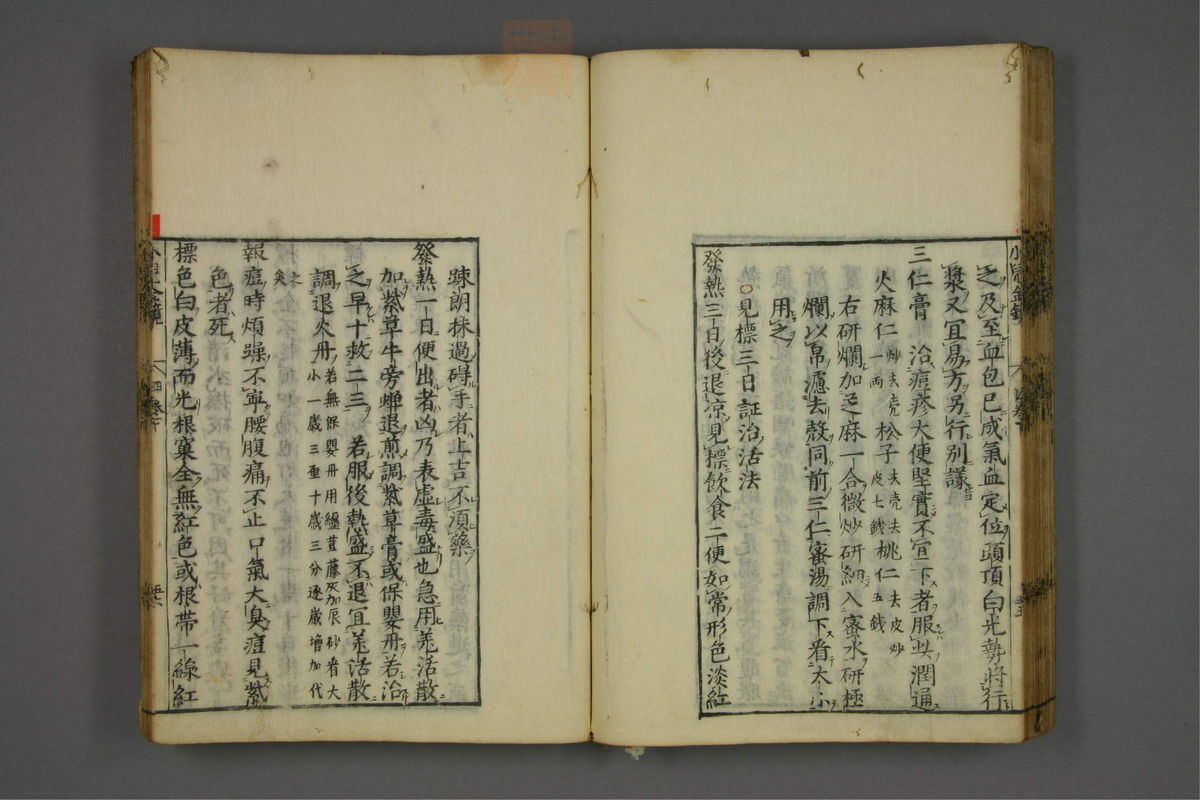 之及至血包已成氣血定位頭頂白光勢將行
漿又宜易方另行別議
三仁膏 治痘疹大便堅實不宜下者服此潤通
火麻仁一兩炒去壳松子去壳去皮七錢桃仁去皮炒五錢
右研爛加芝麻一合微炒研細入蜜水研極
爛以帛濾去殼同前三仁蜜湯調下看大小
用之
○見標三日証治活法
發熱三日後退凉見標飲食二便如常形色淡紅
踈朗抹過碍手者上吉不湏藥
發熱一日便出者凶乃表虚毒盛也急用羌活散
加紫草牛旁蟬退煎調紫草膏或保嬰丹若治
之早十救二三 若服後熱盛不退宜羌活散
調退火丹若無保嬰丹用纏荳藤灰加辰砂看大小一歲三厘十歲三分逐歲增加代之矣
報痘時煩躁不寧腰腹痛不止口氣大臭痘見紫
色者死
標色白皮薄而光根窠全無紅色或根帶一線紅